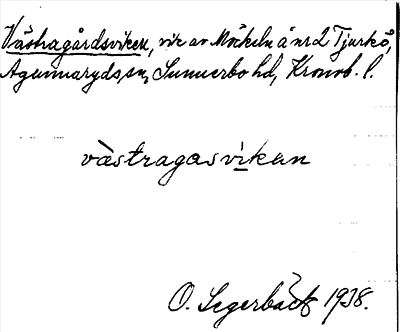 Västragårdsviken, vik av Möckeln å nr 2 Tjurkö,
Agunnaryds sn, Sunnerbo hd, Kronob. l.
västragasvikan
O. Segerbäck 1938.